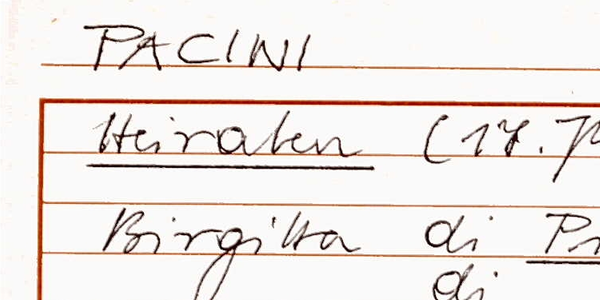 PACINI
Heiraten (17.
Birgitta di
di